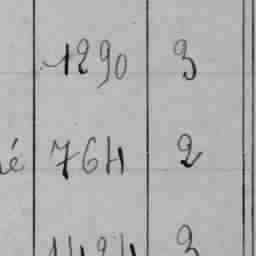 1290 3
é 764 2
3